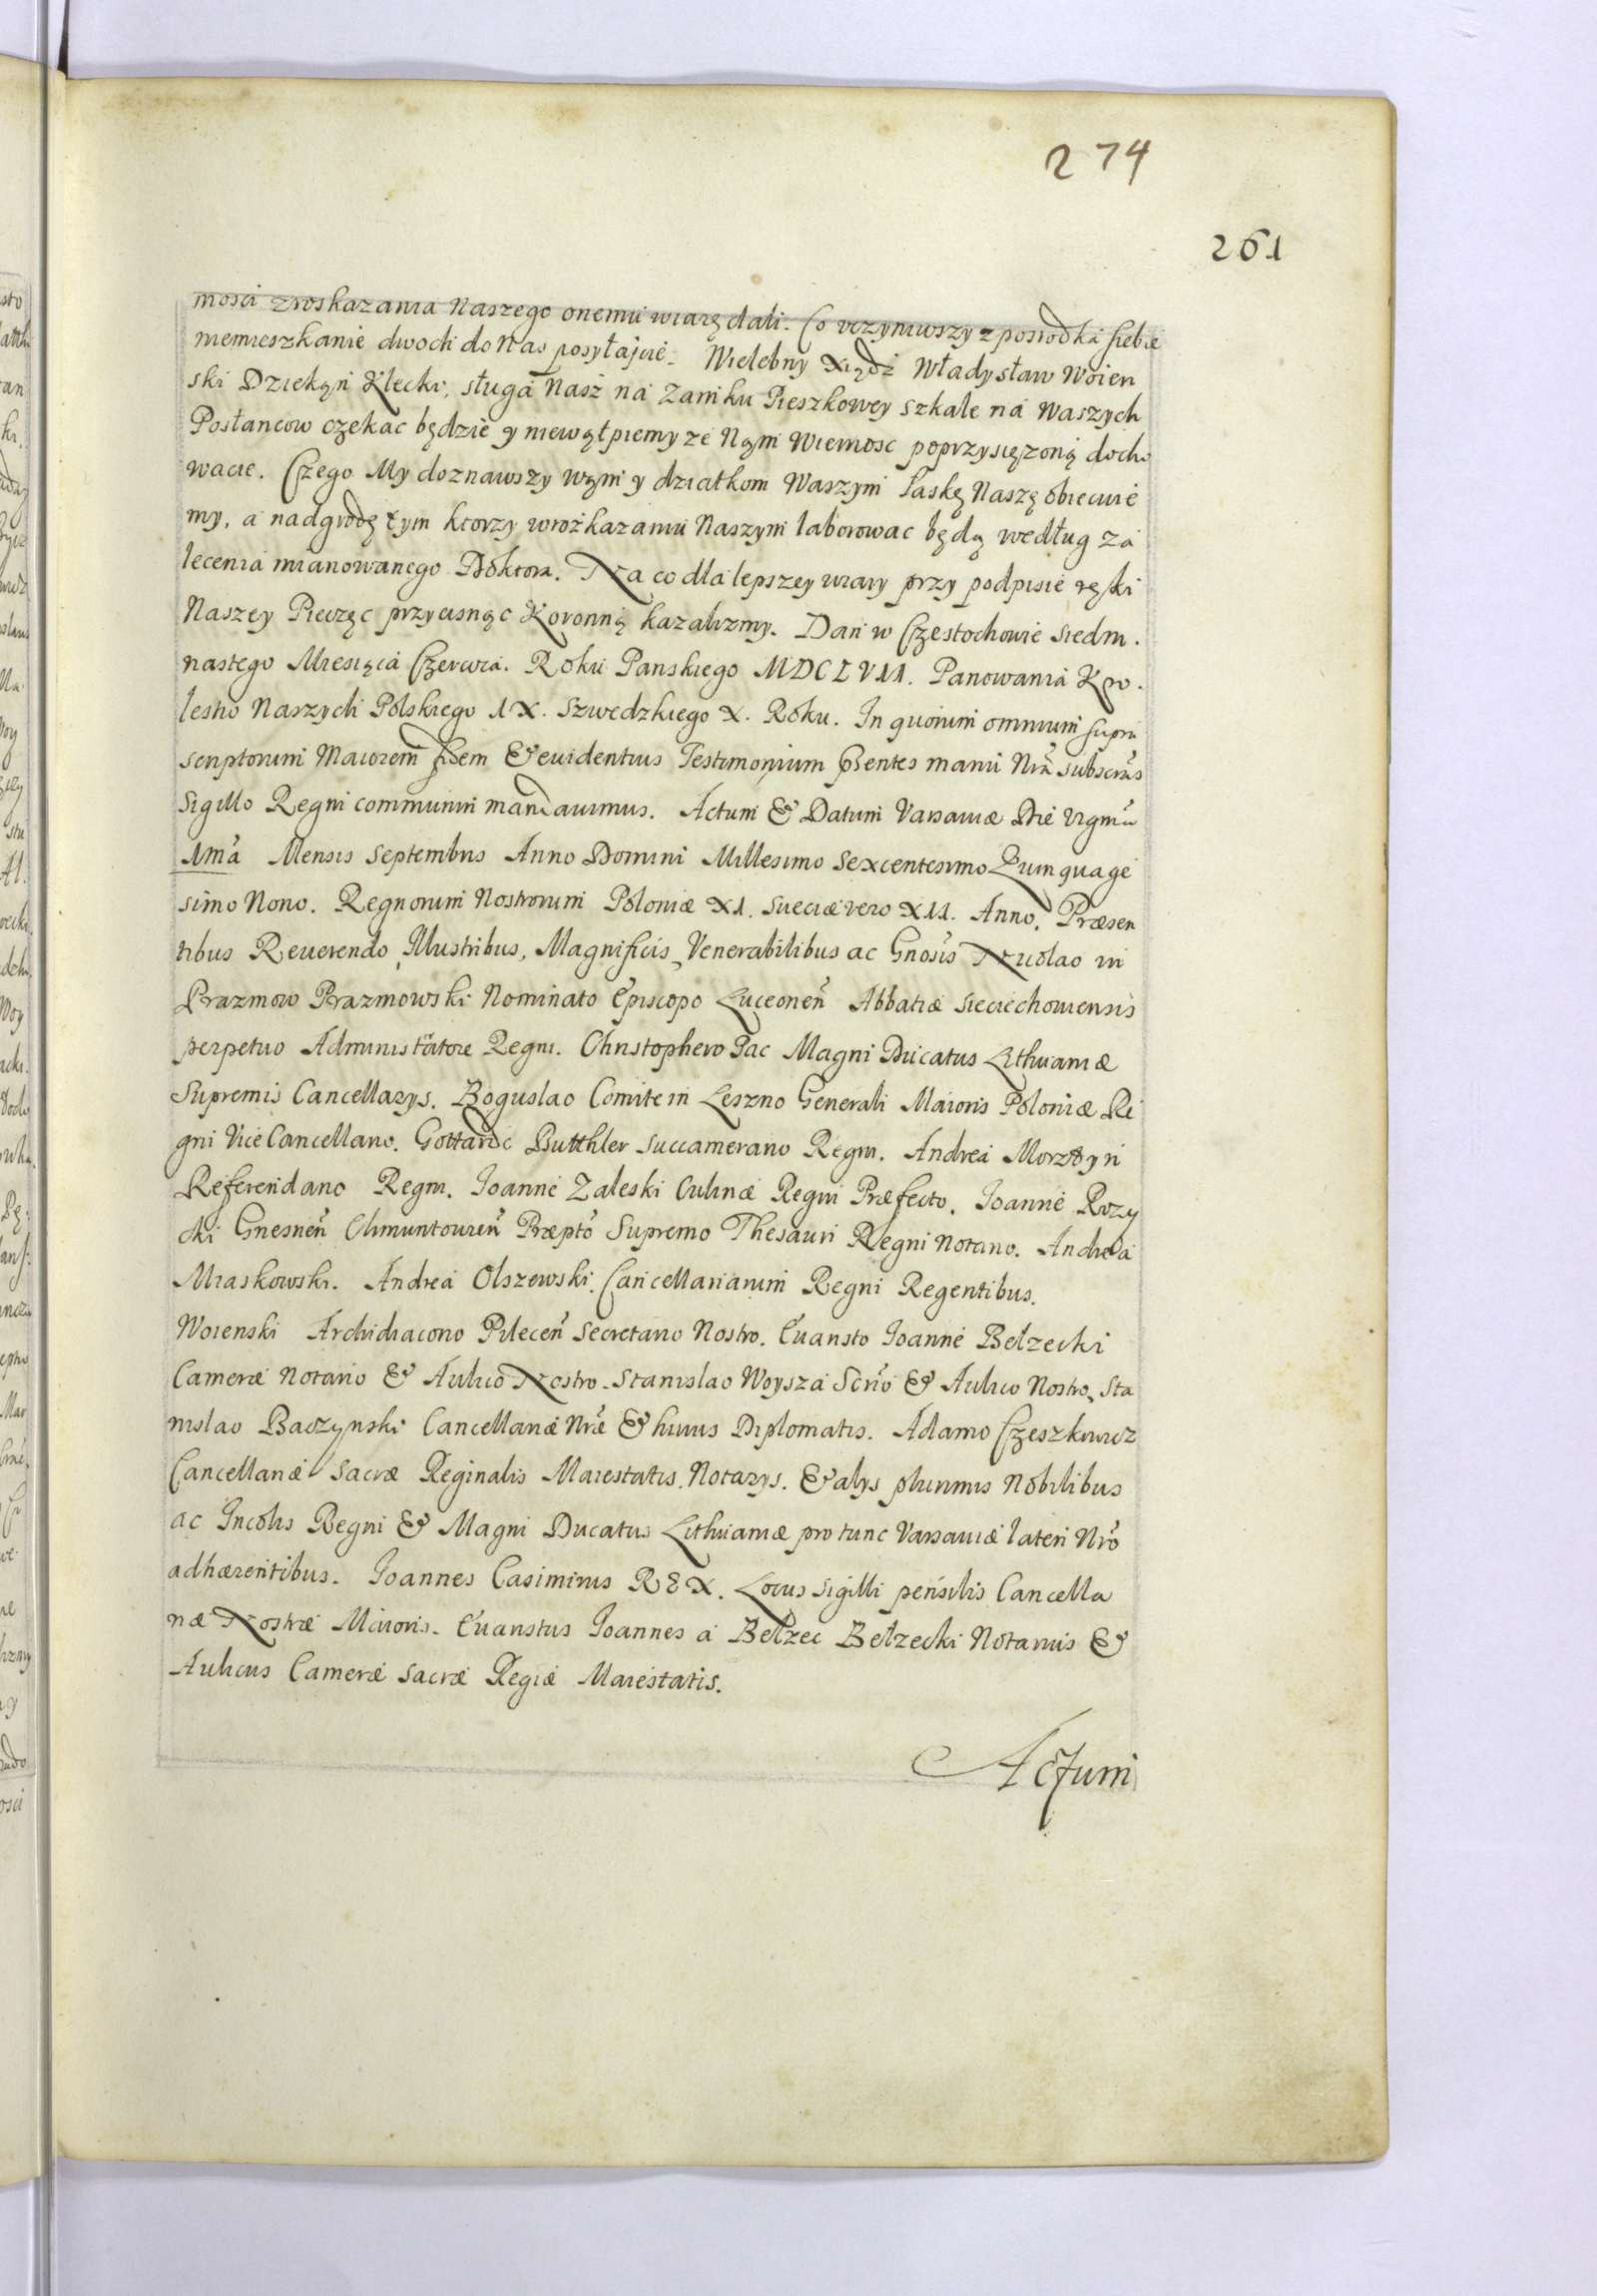 274
261
mosci zroskazania Naszego onemu wiarę dali. Co vczyniwszy z posrodka siebie
niemieszkanie dwoch do Nas posyłajcie. Wielebny Xiądz Władysław Woien
ski Dziekan Klecki, sługa Nasz na Zamku Pieszkowey szkale na Waszych
Posłancow czekac będzie y niewątpiemy ze Nam Wiernosc poprzysięzoną docho
wacie. Czego My doznawszy wam y dziatkom Waszym Łaskę Naszę obiecuie
my, a nadgrodę tym ktorzy wrozkazaniu Naszym laborowac będą według za
lecenia mianowanego Doktora. Na co dla lepszey wiary przy podpisie ręki
Naszey Pieczęc przycisnąc Koronną kazalizmy. Dan w Częstochowie siedm.
nastego Miesiąca Czerwca. Roku Panskiego MDCLVII. Panowania Kro.
lestw Naszych Polskiego IX. Szwedzkiego X. Roku. In quorum omnium supra
scriptorum Maiorem fidem & euidentius Testimonium pñtes manu Nrã subscrãs
Sigillo Regni communiri mandauimus. Actum & Datum Varsauiæ Die vigesi
Imã Mensis Septembris Anno Domini Millesimo Sexcentesimo Quinquage
simo Nono. Regnorum Nostrorum Poloniæ XI. Sueciæ vero XII. Anno. Præsen
tibus Reuerendo, Illustribus, Magnificis, Venerabilibus ac Gnosis Nicolao in
Prazmow Prazmowski Nominato Episcopo Luceoneñ Abbatiæ Sieciechouiensis
perpetuo Administratore Regni. Christophero Pac Magni Ducatus Lithuaniæ
Supremis Cancellarys. Boguslao Comite in Leszno Generali Maioris Poloniæ Re
gni Vice Cancellario. Gottardo Butthler Succamerario Regni. Andrea Morztyn
Referendario Regni. Joanne Zaleski Culinæ Regni Præfecto. Joanne Rozy
cki Gnesneñ Climuntouieñ Præpto Supremo Thesauri Regni Notario. Andrea
Miaskowski. Andrea Olszewski. Cancellariarum Regni Regentibus.
Woienski Archidiacono Pileceñ Secretario Nostro. Euaristo Joanne Bełzecki
Cameræ Notario & Aulico Nostro. Stanislao Woysza Scrio & Aulico Nostro. Sta
nislao Baczynski Cancellariæ Nræ & huius Diplomatis. Adamo Czeszkiewicz
Cancellariæ Sacræ Reginalis Maiestatis. Notarys. & alys plurimis Nobilibus
ac Incolis Regni & Magni Ducatus Lithuaniæ pro tunc Varsauiæ lateri Nro
adhærentibus. Joannes Casimirus REX. Locus sigilli pensilis Cancella
riæ Nostræ Maioris. Euaristus Joannes a Bełzec Bełzecki Notarius &
Aulicus Cameræ Sacræ Regiæ Maiestatis.
Actum